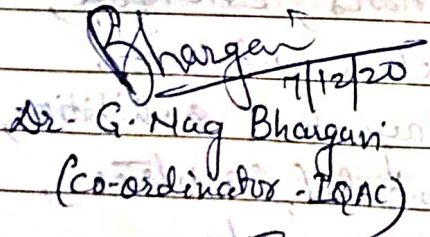 Bhargavi
7/12/20
Dr. G. Nag Bhargavi
(Co-ordinator - IQAC)